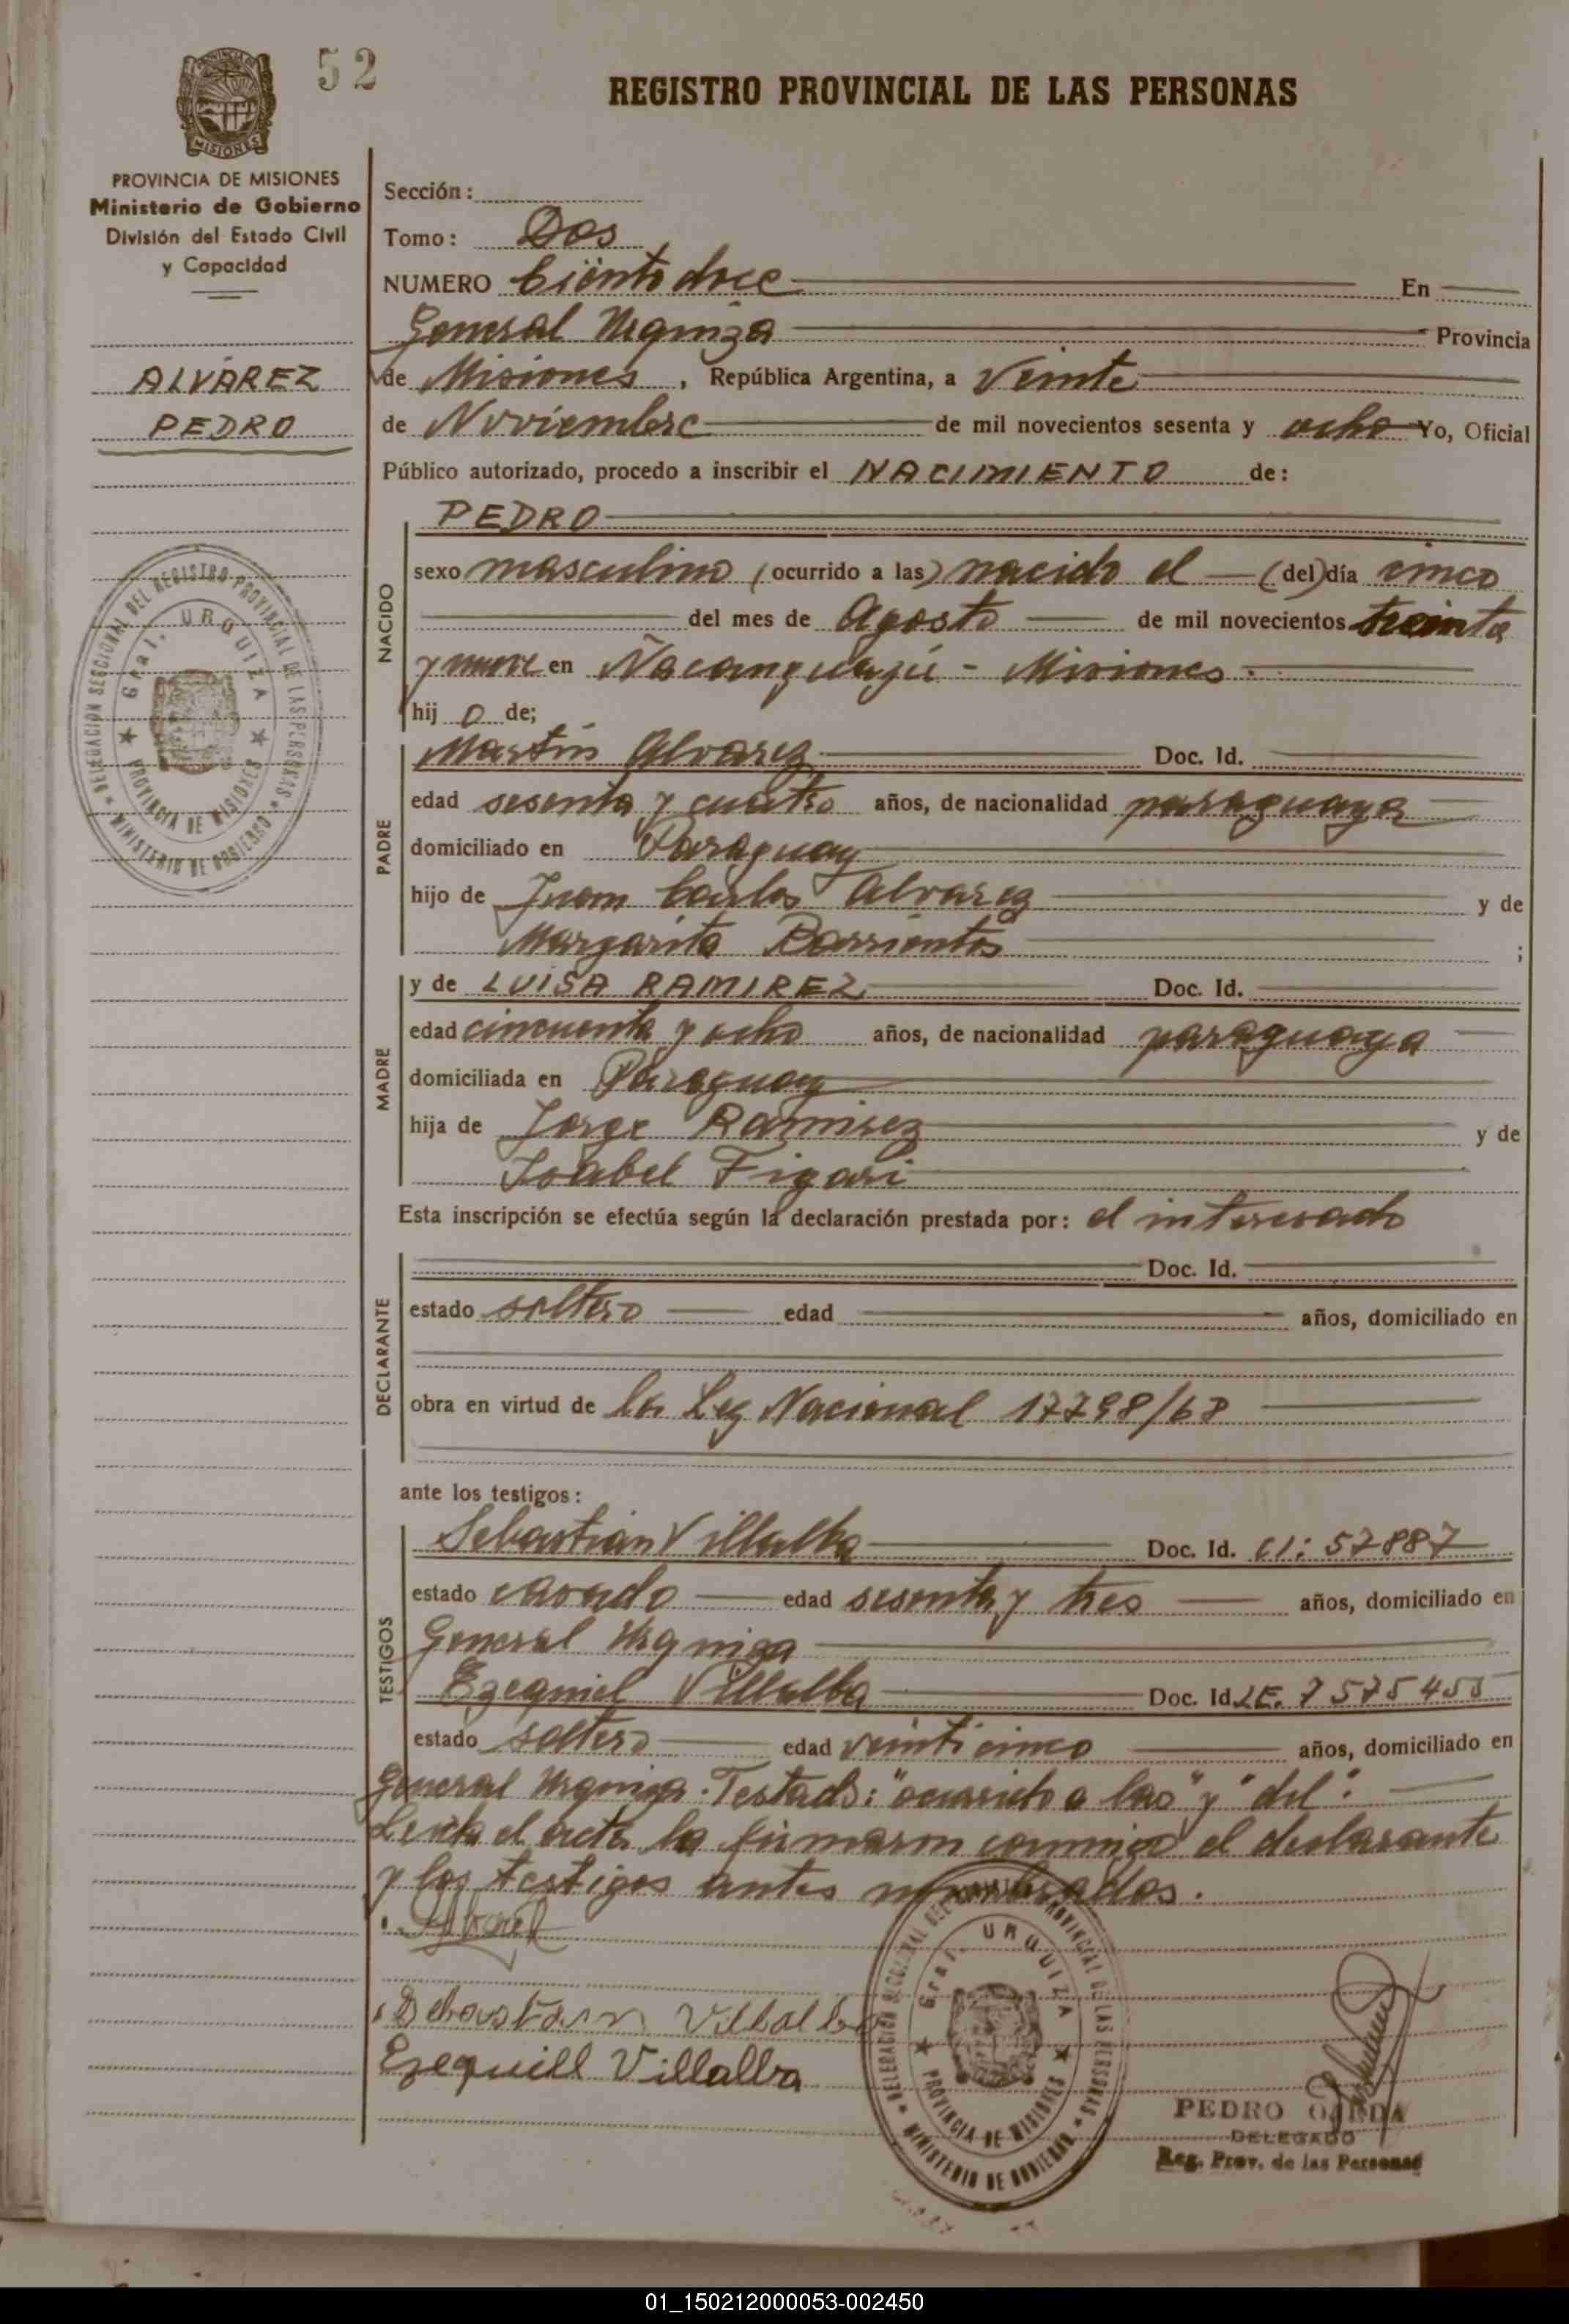 52
REGISTRO PROVINCIAL DE LAS PERSONAS
MISIONES
PROVINCIA DE MISIONES
Ministerio de Gobierno
División del Estado Civil
y Capacidad
ALVAREZ
PEDRO
DELEGACION SECCIONAL DEL REGISTRO PROVINCIAL DE LAS PERSONAS
Gral. URQUIZA
PROVINCIA DE MISIONES
MINISTERIO DE GOBIERNO
Sección:
Tomo: Dos
NUMERO Ciento doce En
General Urquiza Provincia
de Misiones, República Argentina, a Veinte
de Noviembre de mil novecientos sesenta y ocho Yo, Oficial
Público autorizado, procedo a inscribir el NACIMIENTO de:
NACIDO
PEDRO
sexo masculino (ocurrido a las) nacido el (del) día cinco
del mes de Agosto de mil novecientos treinta
y nueve en Ñacanguazú - Misiones.
hij o de;
PADRE
Martín Alvarez Doc. Id.
edad sesenta y cuatro años, de nacionalidad paraguaya
domiciliado en Paraguay
hijo de Juan Carlos Alvarez y de
Margarita Barrientos ;
MADRE
y de LUISA RAMIREZ Doc. Id.
edad cincuenta y ocho años, de nacionalidad paraguaya
domiciliada en Paraguay
hija de Jorge Ramirez y de
Isabel Figari
Esta inscripción se efectúa según la declaración prestada por: el interesado
DECLARANTE
Doc. Id.
estado soltero edad años, domiciliado en
obra en virtud de la Ley Nacional 17798/68
ante los testigos:
TESTIGOS
Sebastián Villalba Doc. Id. CI: 57887
estado casado edad sesenta y tres años, domiciliado en
General Urquiza
Ezequiel Villalba Doc. Id. LE. 7575455
estado soltero edad veinticinco años, domiciliado en
General Urquiza. Testado: "ocurrido a las" y "del".
Leída el acta la firmaron conmigo el declarante
y los testigos antes nombrados.
Sebastian Villalba
Ezequiell Villalba
DELEGACION SECCIONAL DEL REGISTRO PROVINCIAL DE LAS PERSONAS
Gral. URQUIZA
PROVINCIA DE MISIONES
MINISTERIO DE GOBIERNO
PEDRO OJEDA
DELEGADO
Reg. Prov. de las Personas
01_150212000053-002450